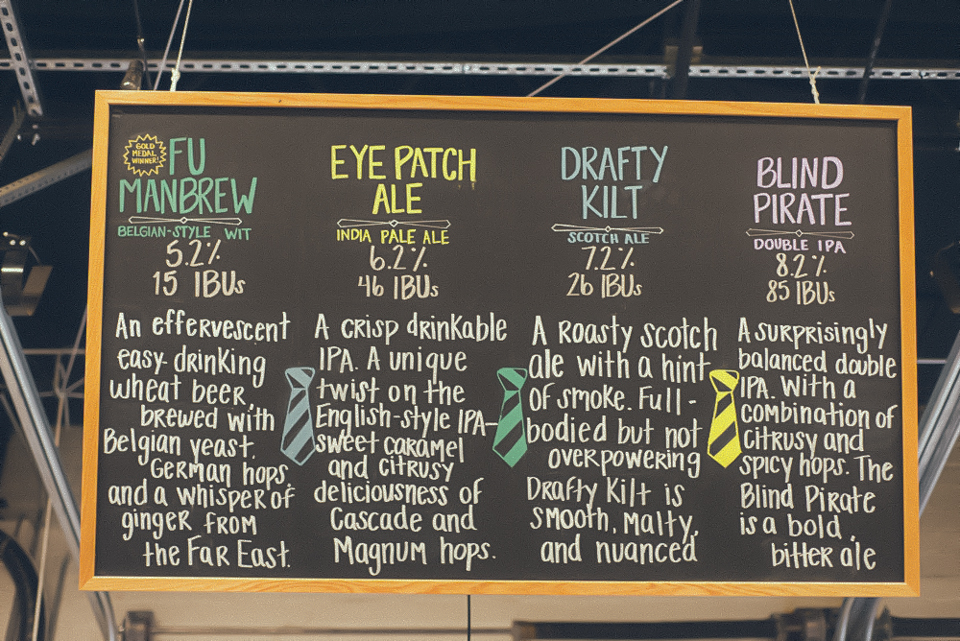 GOLD
MEDAL
WINNER!
FU
MANBREW
BELGIAN-STYLE WIT
5.2%
15 IBUs
An effervescent
easy-drinking
wheat beer,
brewed with
Belgian yeast,
German hops,
and a whisper of
ginger from
the Far East.
EYE PATCH
ALE
INDIA PALE ALE
6.2%
46 IBUs
A crisp drinkable
IPA. A unique
twist on the
English-style IPA-
sweet caramel
and citrusy
deliciousness of
Cascade and
Magnum hops.
DRAFTY
KILT
SCOTCH ALE
7.2%
26 IBUs
A Roasty scotch
ale with a hint
of smoke. Full-
bodied but not
overpowering
Drafty Kilt is
smooth, malty,
and nuanced
BLIND
PIRATE
DOUBLE IPA
8.2%
85 IBUs
A surprisingly
balanced double
IPA. With a
combination of
citrusy and
spicy hops. The
Blind Pirate
is a bold,
bitter ale